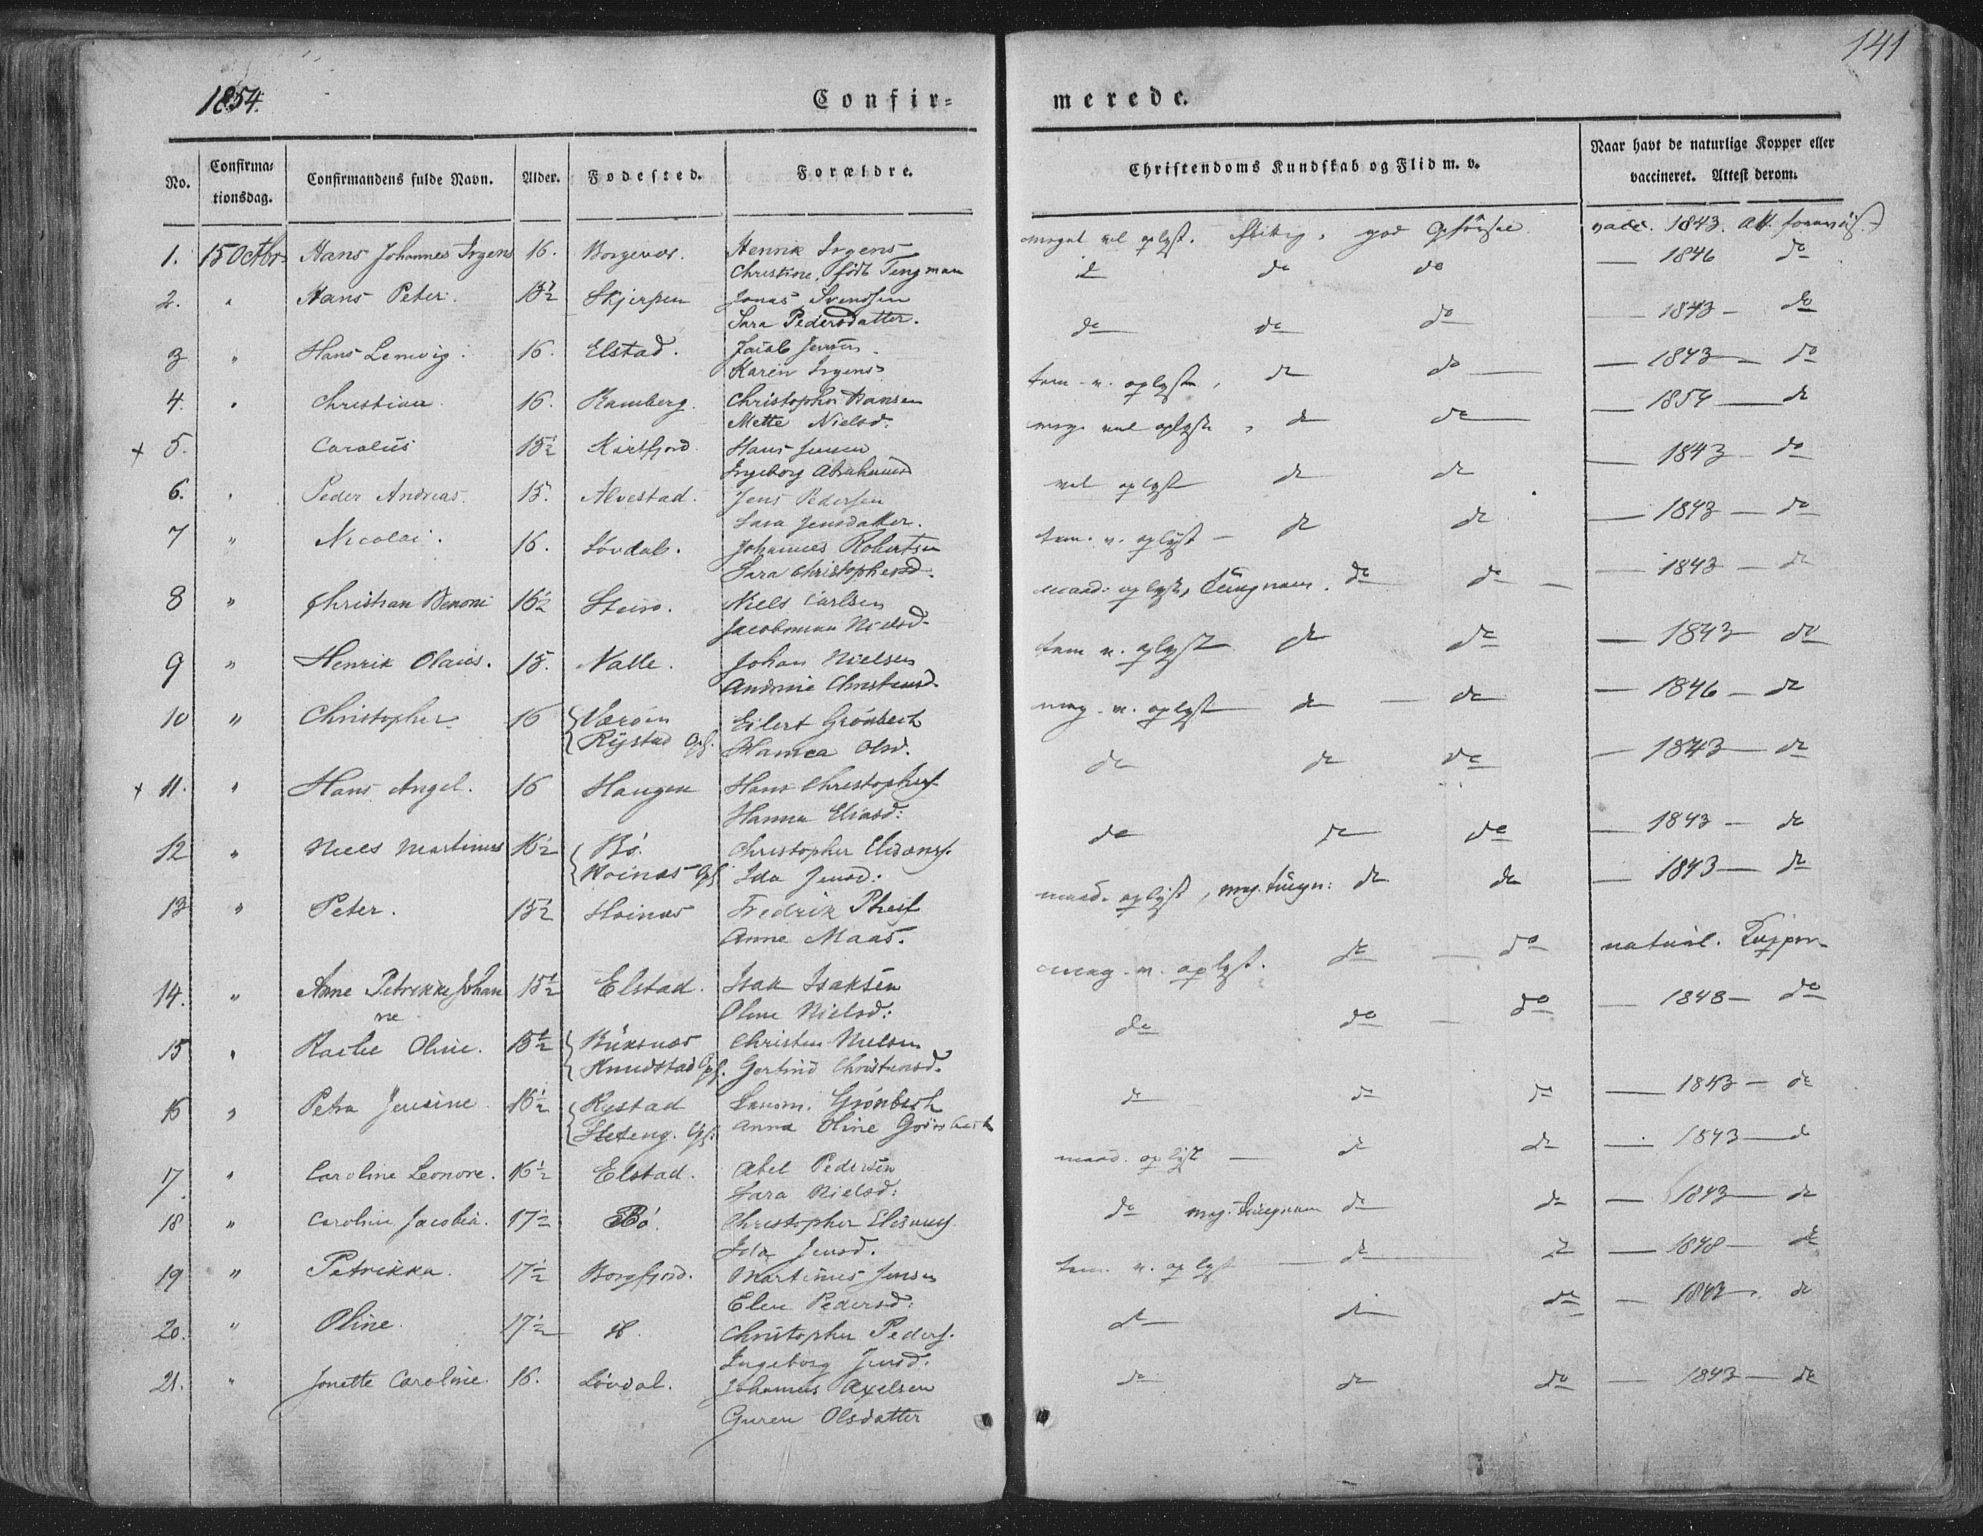 141
1854.
Confir=
merede.
No.
Confirma=
tionsdag.
Confirmandens fulde Navn.
Alder.
Fødested.
Forældre.
Christendoms Kundskab og Flid m. v.
Naar havt de naturlige Kopper eller
vaccineret. Attest derom.
1. 15 Octbr Hans Johannes Irgens 16. Borgevær Henrik Irgens meget vel oplyst. flittig, god Opførsel vacc. 1843. Att. foreviist
Christine, født Tengman
2. " Hans Peter. 15½ Skjerpen Jonas Svendsen do do do — 1846 do
Sara Pedersdatter.
3 " Hans Lemvig. 16. Elstad. Jacob Jensen do do do — 1843 — do
Karen Irgens
4. " Christian 16. Ramberg. Christopher Hansen tem. v. oplyst, do do — 1843 — do
Mette Nielsd.
+ 5. Carolus 15½ Kirkfjord Hans Jensen meg. vel oplyst, do do — 1854 — do
Ingeborg Abrahamsd
6. " Peder Andreas. 15. Alvestad. Jens Pedersen vel oplyst do do — 1843 — do
Sara Jensdatter.
7 " Nicolai. 16. Løvdal. Johannes Robertsen tem. v. oplyst — do do — 1843 — do
Sara Christophersd.
8 " Christian Benoni 16½ Steiro. Niels Carlsen maad. oplyst, Tungnem. do do — 1843 — do
Jacobmina Nielsd.
9 " Henrik Olaus. 15. Nalle. Johan Nielsen tem v. oplyst do do — 1843 do
Andrine Christensd.
10 " Christopher 16 Værøen Eilert Grönbech meg. v. oplyst do — do — 1846 — do
Rystad Opf. Hanna Olsd.
+ 11. " Hans Angel. 16 Haugen Hans Christophers do do do — 1843 — do
Hanna Eliasd:
12 " Niels Martinus 16½ Bö. Christopher Elisæus. do do do — 1843 — do
Hoinæs Opf Ida Jensd:
13 " Peter. 15½ Hoinæs Fredrik Pheif maad. oplyst, meg. tungn: do do — 1843 — do
Anne Maas.
14. " Anne Petrikke Johan 15½ Elstad. Isak Isaksen meg. v. oplyst. do — do naturl. Kopper
ne Oline Nielsd:
15 " Rachel Oline. 15½ Buksnæs Christen Nielsen do do — do — 1848 — do
Knudstad Opf. Gertrud Christensd.
16 " Petra Jensine 16½ Rystad Grönbech do do do — 1843 — do
Opf. Anna Oline Grönbech
17. " Caroline Leonore. 16½ Elstad. Abel Pedersen maad. oplyst — do do — 1843 — do
Sara Nielsd:
18 " Caroline Jacobia. 17½ Bö. Christopher Elisæus. do meg. tungnem do do — 1843 — do
Ida Jensd.
19 " Petrikka. 17½ Borgfjord. Martinus Jensen tem. v. oplyst — do do — 1848 — do
Elen Pedersd:
20. " Oline. 17½ do. Christopher Peders. do do do — 1843. do
Ingeborg Jensd:
21. " Jonette Caroline. 16. Løvdal. Johannes Axelsen do do do — 1843 — do
Guren Olsdatter